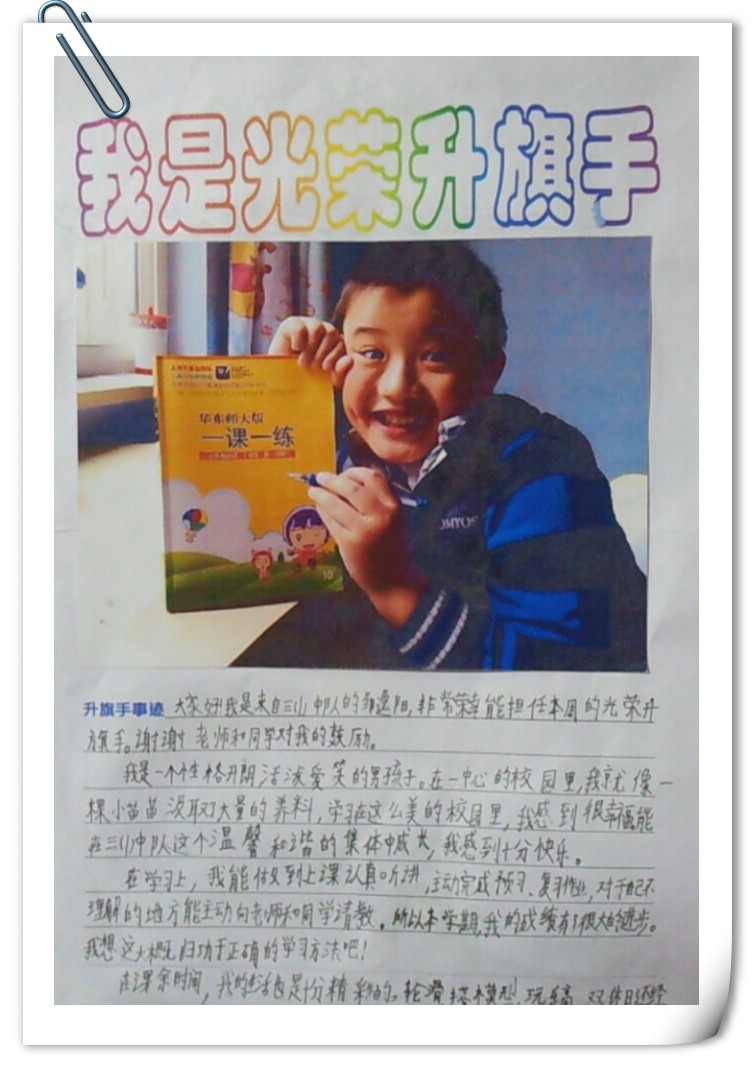 我是光荣升旗手
华东师大版
一课一练
OMYOS
10
升旗手事迹 大家好!我是来自三(1)中队的邹逸阳,非常荣幸能担任本周的光荣升
旗手。谢谢老师和同学对我的鼓励。
我是一个性格开朗活泼爱笑的男孩子。在一中心的校园里,我就像一
棵小苗苗汲取了大量的养料,学习在这么美的校园里,我感到很幸福能
在三(1)中队这个温馨和谐的集体中成长,我感到十分快乐。
在学习上,我能做到上课认真听讲,主动完成预习、复习作业,对于自己不
理解的地方能主动向老师和同学请教。所以本学期,我的成绩有了很大的进步。
我想这大概归功于正确的学习方法吧!
在课余时间,我的生活也是十分精彩的。轮滑、搭模型、玩乐高,双休日还经